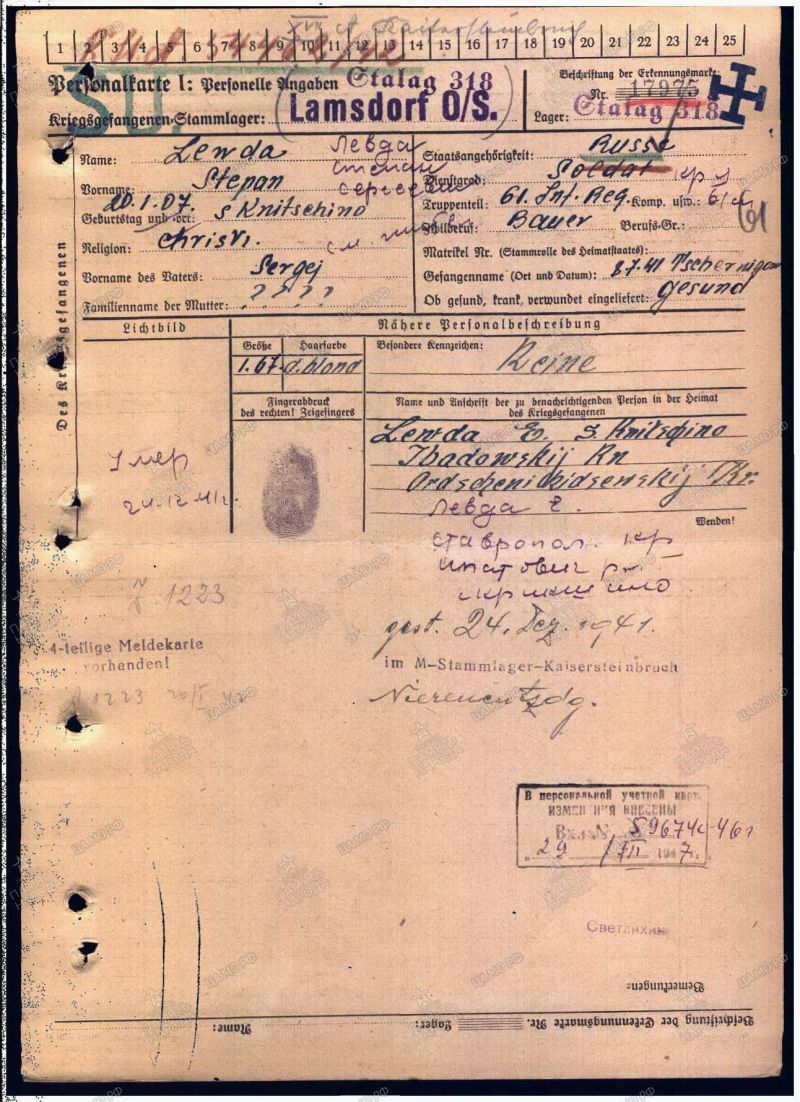 XVII A Kaisersteinbruch
1 2 3 4 5 6 7 8 9 10 11 12 13 14 15 16 17 18 19 20 21 22 23 24 25
SU.
Personalkarte I: Personelle Angaben Stalag 318
Kriegsgefangenen-Stammlager: (Lamsdorf O/S.)
Beschriftung der Erkennungsmarke:
Nr. 17975
Lager: Stalag 318
Name: Lewda Левда
Vorname: Stepan степан
Geburtstag und -ort: 20.1.07. s Knitschino
Religion: christl.
Vorname des Vaters: Sergej
Familienname der Mutter: ? ? ? ?
Staatsangehörigkeit: Russe
Dienstgrad: Soldat кр-ц
Truppenteil: 61. Inf. Reg. Komp. usw.: 61 сп
Zivilberuf: Bauer Berufs-Gr.:
61
Matrikel Nr. (Stammrolle des Heimatstaates):
Gefangennahme (Ort und Datum): 8.7.41 Tschernigow
Ob gesund, krank, verwundet eingeliefert: gesund
Des Kriegsgefangenen
Lichtbild
Nähere Personalbeschreibung
Größe Haarfarbe Besondere Kennzeichen:
1.67. d.blond Keine
Fingerabdruck
des rechten! Zeigefingers
Name und Anschrift der zu benachrichtigenden Person in der Heimat
des Kriegsgefangenen
Lewda E. S. Knitschino
Ibadowskij Rn
Ordschenikidsenskij Kr.
Умер
24.12.41г.
Левда Е.
Wenden!
ставропол. кр
ипатовск р-н
J 1223
gest. 24. Dez. 1941.
4-teilige Meldekarte
vorhanden!
im M-Stammlager-Kaisersteinbruch
1223 20/I 42
Nierenentzdg.
В персональной учетной карт.
ИЗМЕНЕНИЯ ВНЕСЕНЫ
Вх. № 59674с-46г
29 /VII 1947.
Светлихин
Bemerkungen:
Name: Lager: Beschriftung der Erkennungsmarke Nr.